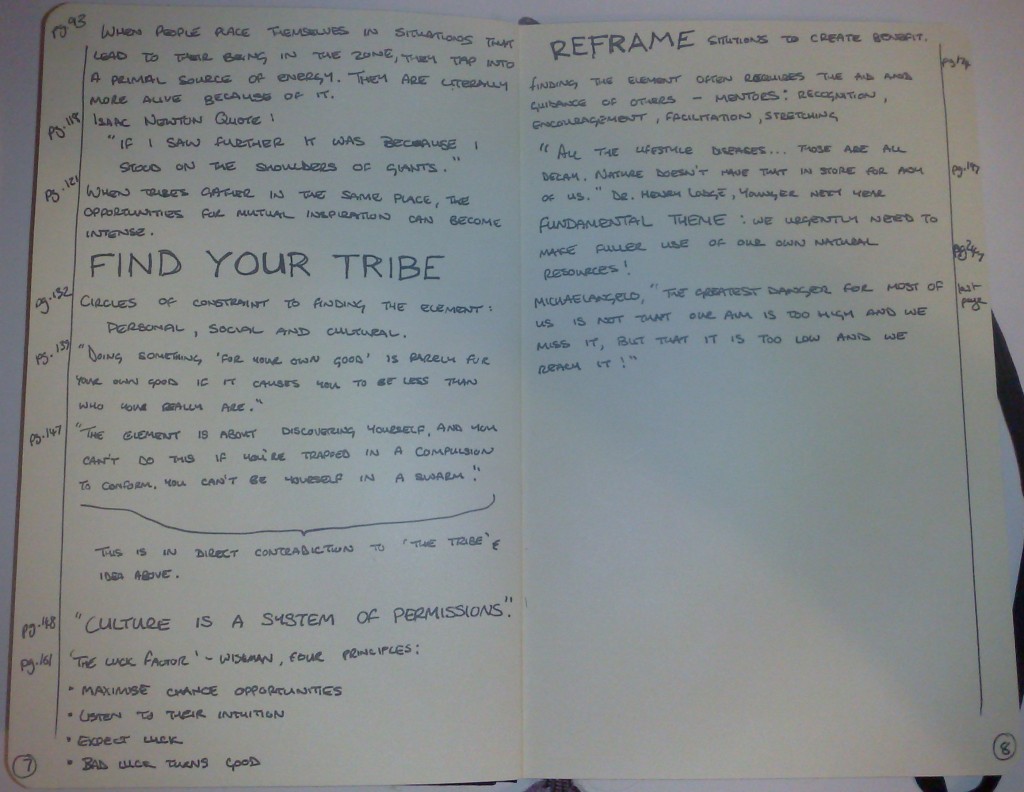 pg.93 WHEN PEOPLE PLACE THEMSELVES IN SITUATIONS THAT
LEAD TO THEIR BEING IN THE ZONE, THEY TAP INTO
A PRIMAL SOURCE OF ENERGY. THEY ARE LITERALLY
MORE ALIVE BECAUSE OF IT.
pg.118 ISAAC NEWTON QUOTE:
"IF I SAW FURTHER IT WAS BECAUSE I
STOOD ON THE SHOULDERS OF GIANTS."
pg.121 WHEN TRIBES GATHER IN THE SAME PLACE, THE
OPPORTUNITIES FOR MUTUAL INSPIRATION CAN BECOME
INTENSE.
FIND YOUR TRIBE
pg.132 CIRCLES OF CONSTRAINT TO FINDING THE ELEMENT:
PERSONAL, SOCIAL AND CULTURAL.
"DOING SOMETHING 'FOR YOUR OWN GOOD' IS RARELY FUR
YOUR OWN GOOD IF IT CAUSES YOU TO BE LESS THAN
WHO YOUR REALLY ARE."
pg.147 "THE ELEMENT IS ABOUT DISCOVERING YOURSELF, AND YOU
CAN'T DO THIS IF YOU'RE TRAPPED IN A COMPULSION
TO CONFORM. YOU CAN'T BE YOURSELF IN A SWARM."
THIS IS IN DIRECT CONTRADICTION TO 'THE TRIBE'
IDEA ABOVE.
pg.148 "CULTURE IS A SYSTEM OF PERMISSIONS."
pg.161 'THE LUCK FACTOR' - WISEMAN, FOUR PRINCIPLES:
• MAXIMISE CHANCE OPPORTUNITIES
• LISTEN TO THEIR INTUITION
• EXPECT LUCK
• BAD LUCK TURNS GOOD
7
REFRAME SITUTIONS TO CREATE BENEFIT.
FINDING THE ELEMENT OFTEN REQUIRES THE AID AND
GUIDANCE OF OTHERS - MENTORS: RECOGNITION,
ENCOURAGEMENT, FACILITATION, STRETCHING
"ALL THE LIFESTYLE DISEASES... THOSE ARE ALL
DECAY. NATURE DOESN'T HAVE THAT IN STORE FOR ANY
OF US." DR. HENRY LODGE, YOUNGER NEXT YEAR
FUNDAMENTAL THEME: WE URGENTLY NEED TO
MAKE FULLER USE OF OUR OWN NATURAL
RESOURCES!
MICHAELANGELO, "THE GREATEST DANGER FOR MOST OF
US IS NOT THAT OUR AIM IS TOO HIGH AND WE
MISS IT, BUT THAT IT IS TOO LOW AND WE
REACH IT!"
last
page
8